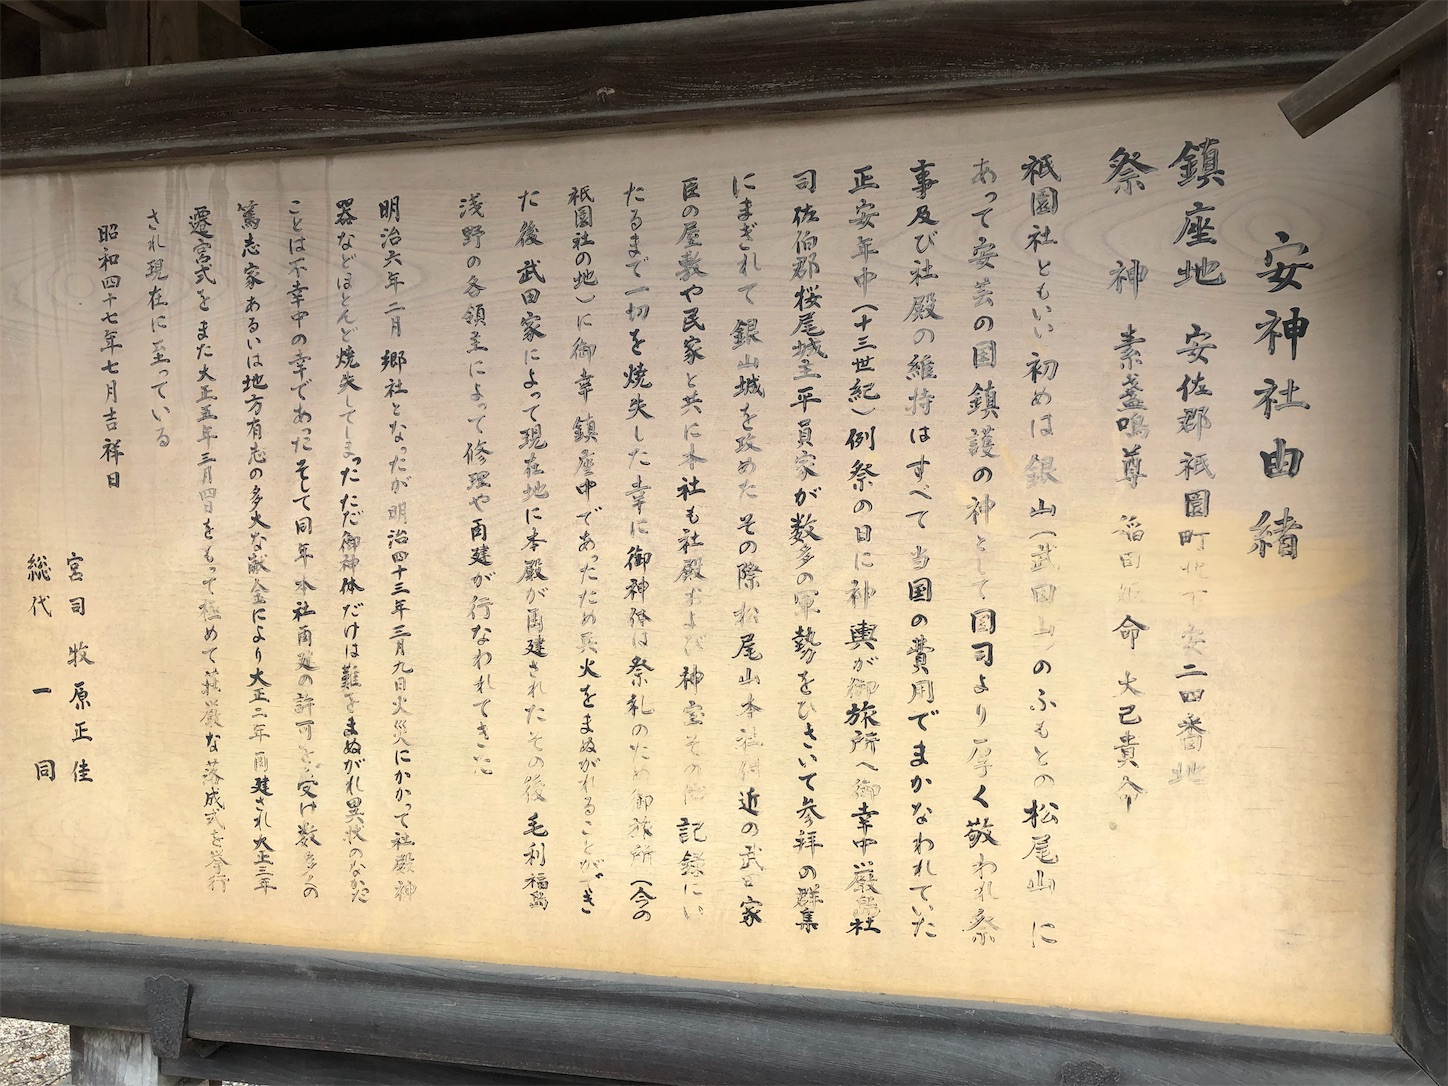 安神社由緒
鎮座地 安佐郡祇園町北下安二四番地
祭神 素盞鳴尊 稲田姫命 大己貴命
祇園社ともいい初めは銀山(武田山)のふもとの松尾山に
あって安芸の国鎮護の神として国司より厚く敬われ祭
事及び社殿の維持はすべて当国の費用でまかなわれていた
正安年中(十三世紀)例祭の日に神輿が御旅所へ御幸中厳島社
司佐伯郡桜尾城主平員家が数多の軍勢をひきいて参拝の群集
にまぎれて銀山城を攻めたその際松尾山本社付近の武田家
臣の屋敷や民家と共に本社も社殿および神宝その他記録にい
たるまで一切を焼失した幸に御神体は祭礼のため御旅所(今の
祇園社の地)に御幸鎮座中であったため兵火をまぬがれることができ
た後武田家によって現在地に本殿が再建されたその後毛利福島
浅野の各領主によって修理や再建が行なわれてきた
明治六年二月郷社となったが明治四十三年三月九日火災にかかって社殿神
器などほとんど焼失してしまっただ御神体だけは難をまぬがれ異状のなかた
ことは不幸中の幸であったそして同年本社再建の許可を受け数多くの
篤志家あるいは地方有志の多大な献金により大正二年再建され大正三年
遷宮式をまた大正五年三月四日をもって極めて荘厳な落成式を挙行
され現在に至っている
昭和四十七年七月吉祥日
宮司 牧原正佳
総代一同